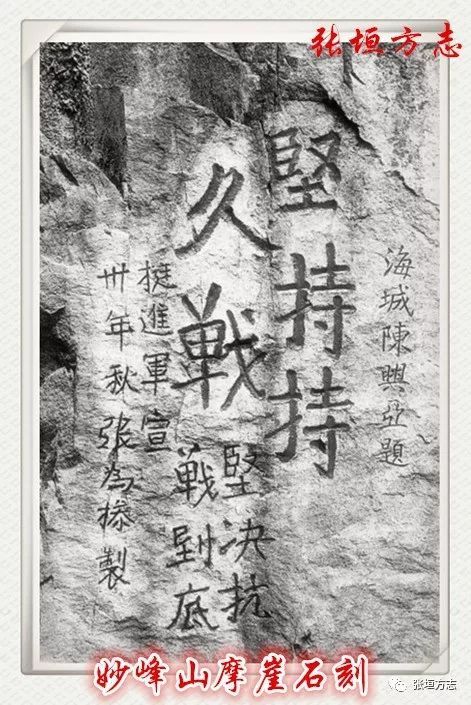 张垣方志
海城陳興亞題
堅持持
久戰
堅决抗
戰到底
挺進軍宣
卅年秋張為製
妙峰山摩崖石刻
张垣方志